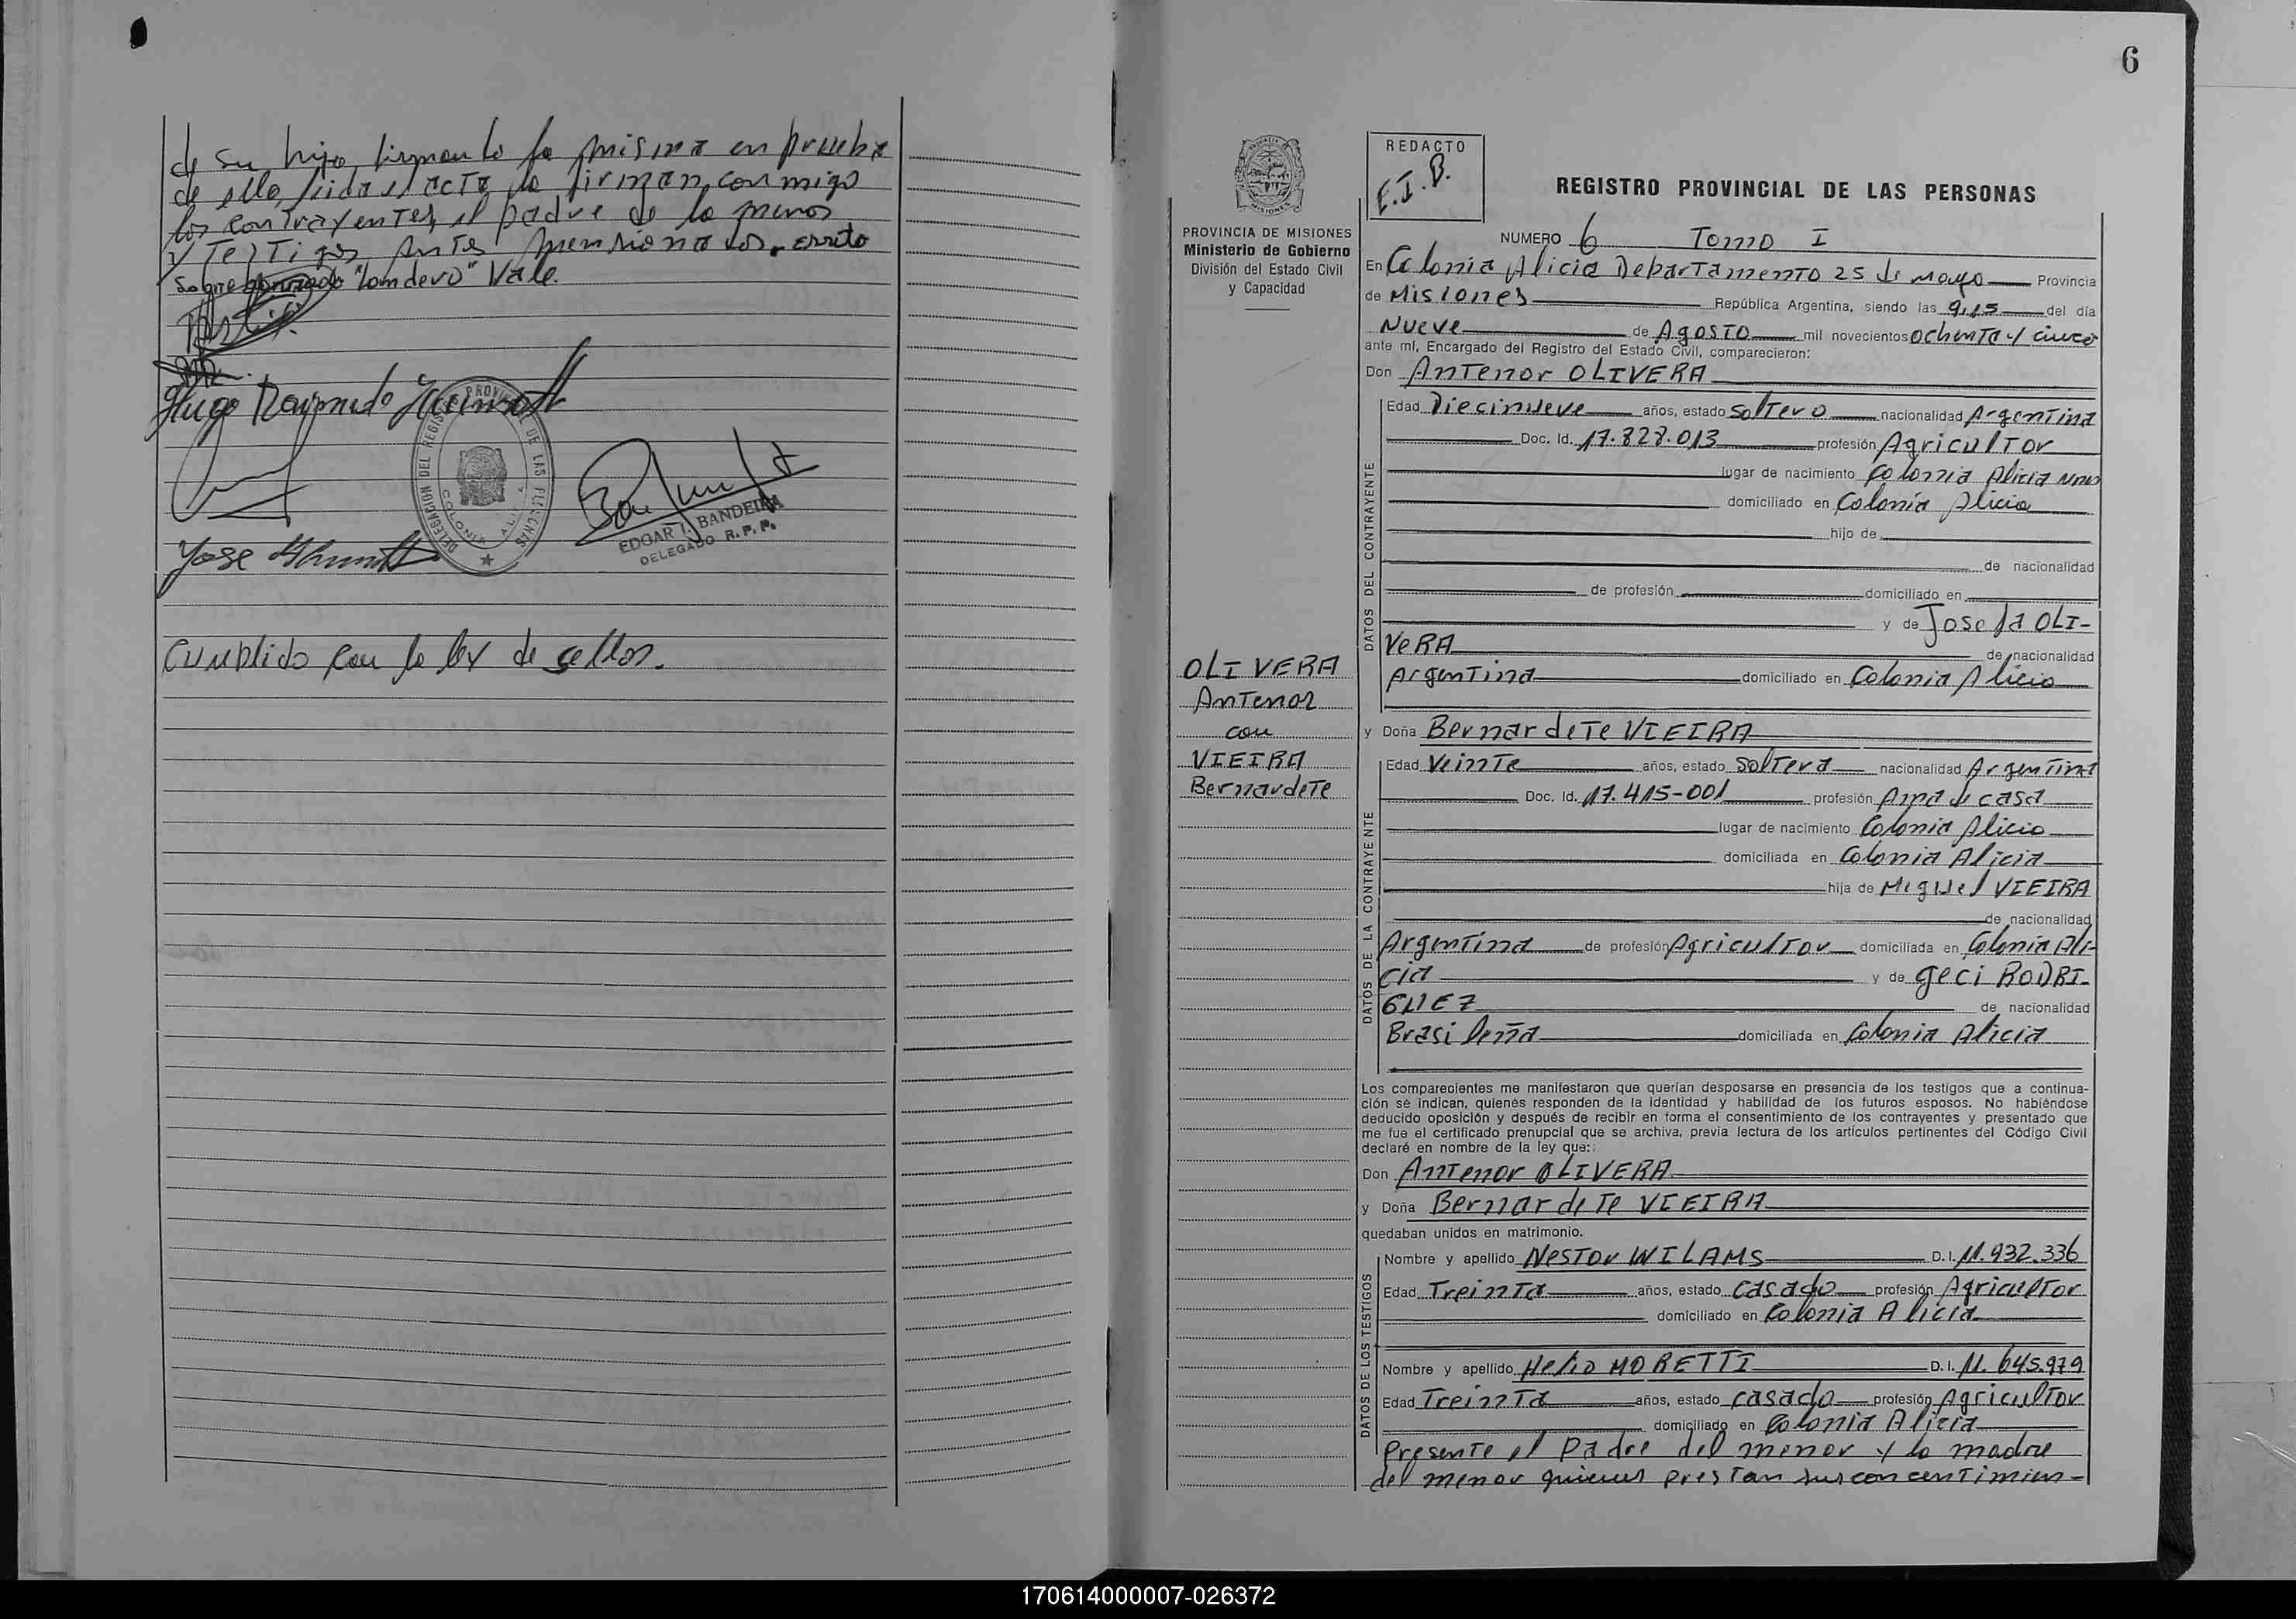 de su hijo, firmando la misma en prueba
de ello, leida el acta la firman conmigo
los contrayentes, el padre de la menor
y Testigos antes mensionados. Errito
Sobre borrado "Londero" Vale.
Hugo Raymundo
DELEGACION DEL REGISTRO PROVINCIAL DE LAS PERSONAS
COLONIA ALICIA
EDGAR I. BANDEIRA
DELEGADO R. P. P.
Jose
Cumplido con la ley de sellos.
6
PROVINCIA DE MISIONES
Ministerio de Gobierno
División del Estado Civil
y Capacidad
OLIVERA
Antenor
con
VIEIRA
Bernardete
REDACTO
E.I.B.
REGISTRO PROVINCIAL DE LAS PERSONAS
NUMERO 6 Tomo I
En Colonia Alicia Departamento 25 de Mayo Provincia
de Misiones República Argentina, siendo las 9,15 del día
Nueve de Agosto mil novecientos ochenta y cinco
ante mí, Encargado del Registro del Estado Civil, comparecieron:
Don Antenor OLIVERA
DATOS DEL CONTRAYENTE
Edad Diecinueve años, estado soltero nacionalidad Argentina
Doc. Id. 17.828.013 profesión Agricultor
lugar de nacimiento Colonia Alicia Mnes
domiciliado en Colonia Alicia
hijo de
de nacionalidad
de profesión domiciliado en
y de Josefa OLI-
VERA de nacionalidad
Argentina domiciliado en Colonia Alicia
y Doña Bernardete VIEIRA
DATOS DE LA CONTRAYENTE
Edad Veinte años, estado Soltera nacionalidad Argentina
Doc. Id. 17.415-001 profesión Ama de casa
lugar de nacimiento Colonia Alicia
domiciliada en Colonia Alicia
hija de Miguel VIEIRA
de nacionalidad
Argentina de profesión Agricultor domiciliada en Colonia Ali-
cia y de Geci RODRI-
GUEZ de nacionalidad
Brasileña domiciliada en Colonia Alicia
Los comparecientes me manifestaron que querían desposarse en presencia de los testigos que a continua-
ción se indican, quienes responden de la identidad y habilidad de los futuros esposos. No habiéndose
deducido oposición y después de recibir en forma el consentimiento de los contrayentes y presentado que
me fue el certificado prenupcial que se archiva, previa lectura de los artículos pertinentes del Código Civil
declaré en nombre de la ley que:
Don Antenor OLIVERA
y Doña Bernardete VIEIRA
quedaban unidos en matrimonio.
DATOS DE LOS TESTIGOS
Nombre y apellido Nestor WILAMS D.I. 11.932.336
Edad Treinta años, estado casado profesión Agricultor
domiciliado en Colonia Alicia
Nombre y apellido Helio MORETTI D.I. 11.645.979
Edad Treinta años, estado casado profesión Agricultor
domiciliado en Colonia Alicia
Presente el padre del menor y la madre
del menor quienes prestan sus concentimien-
170614000007-026372